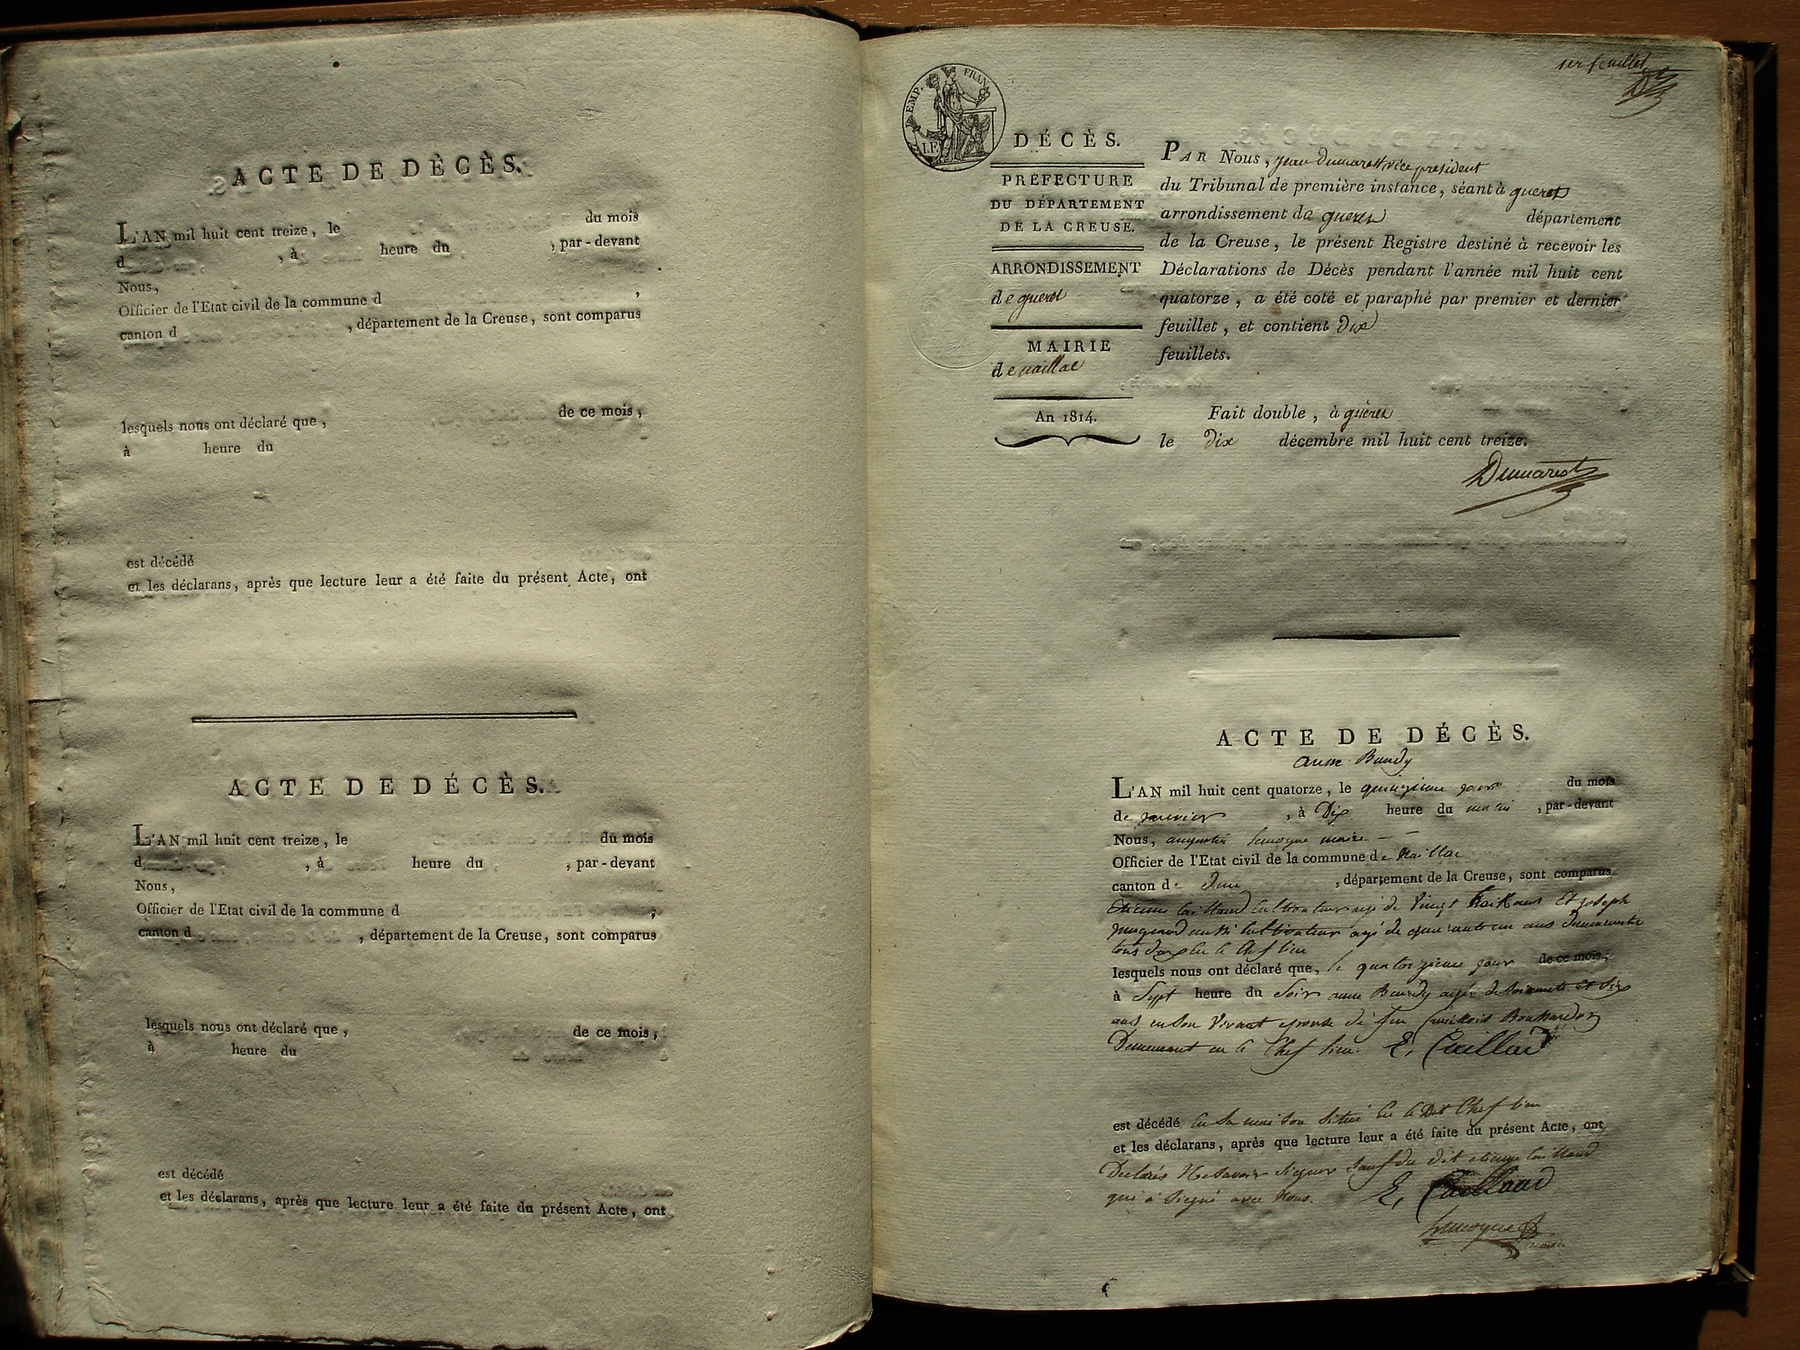 ACTE DE DÈCÈS.
L'AN mil huit cent treize, le du mois
d , à heure du , par-devant
Nous,
Officier de l'Etat civil de la commune d ,
canton d , département de la Creuse, sont comparus
lesquels nous ont déclaré que, de ce mois,
à heure du
est décédé
et les déclarans, après que lecture leur a été faite du présent Acte, ont
ACTE DE DÉCÈS.
L'AN mil huit cent treize, le du mois
d , à heure du , par-devant
Nous,
Officier de l'Etat civil de la commune d ,
canton d , département de la Creuse, sont comparus
lesquels nous ont déclaré que, de ce mois,
à heure du
est décédé
et les déclarans, après que lecture leur a été faite du présent Acte, ont
1er feuillet
EMP. FRAN.
DÉCÈS.
PRÉFECTURE
DU DÉPARTEMENT
DE LA CREUSE.
ARRONDISSEMENT
de gueret
MAIRIE
de naillac
An 1814.
PAR Nous, jean Dumarest vice president
du Tribunal de première instance, séant à gueret
arrondissement de gueret département
de la Creuse, le présent Registre destiné à recevoir les
Déclarations de Décès pendant l'année mil huit cent
quatorze, a été coté et paraphé par premier et dernier
feuillet, et contient dix
feuillets.
Fait double, à guéret
le dix décembre mil huit cent treize.
Dumarest
ACTE DE DÉCÈS.
anne Baudy
L'AN mil huit cent quatorze, le quinzieme jour du mois
de janvier , à Dix heure du matin , par-devant
Nous, augustin Lemoyne maire
Officier de l'Etat civil de la commune de Naillac
canton de dun , département de la Creuse, sont comparus
Etienne Caillaud Cultivateur agé de Vingt huit ans Et joseph
aussi Cultivateur agé de quarante un ans Demeurants
tous Deux En le Chef lieu
lesquels nous ont déclaré que, le quatorzieme jour de ce mois,
à Sept heure du Soir anne Baudy agée de Soixante et Six
ans en Son Vivant epouse de feu
Demeurant en le Chef lieu. E, Caillaud
est décédé en Sa maison Située En le Dit Chef lieu
et les déclarans, après que lecture leur a été faite du présent Acte, ont
Declarés Ne Savoir Signer Sauf du dit etienne Caillaud
qui a Signé avec Nous. E, Caillaud
Lemoyne